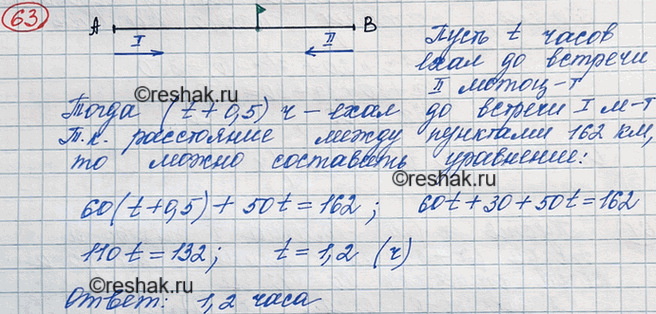 63
A B
I II
Пусть t часов
ехал до встречи
II мотоц-т
©reshak.ru
Тогда (t + 0,5) ч – ехал до встречи I м-т
Т.к. расстояние между пунктами 162 км,
то можно составить уравнение:
©reshak.ru
60(t+0,5) + 50t = 162 ; 60t + 30 + 50t = 162
110t = 132 ; t = 1,2 (ч)
©reshak.ru
©reshak.ru
Ответ: 1,2 часа